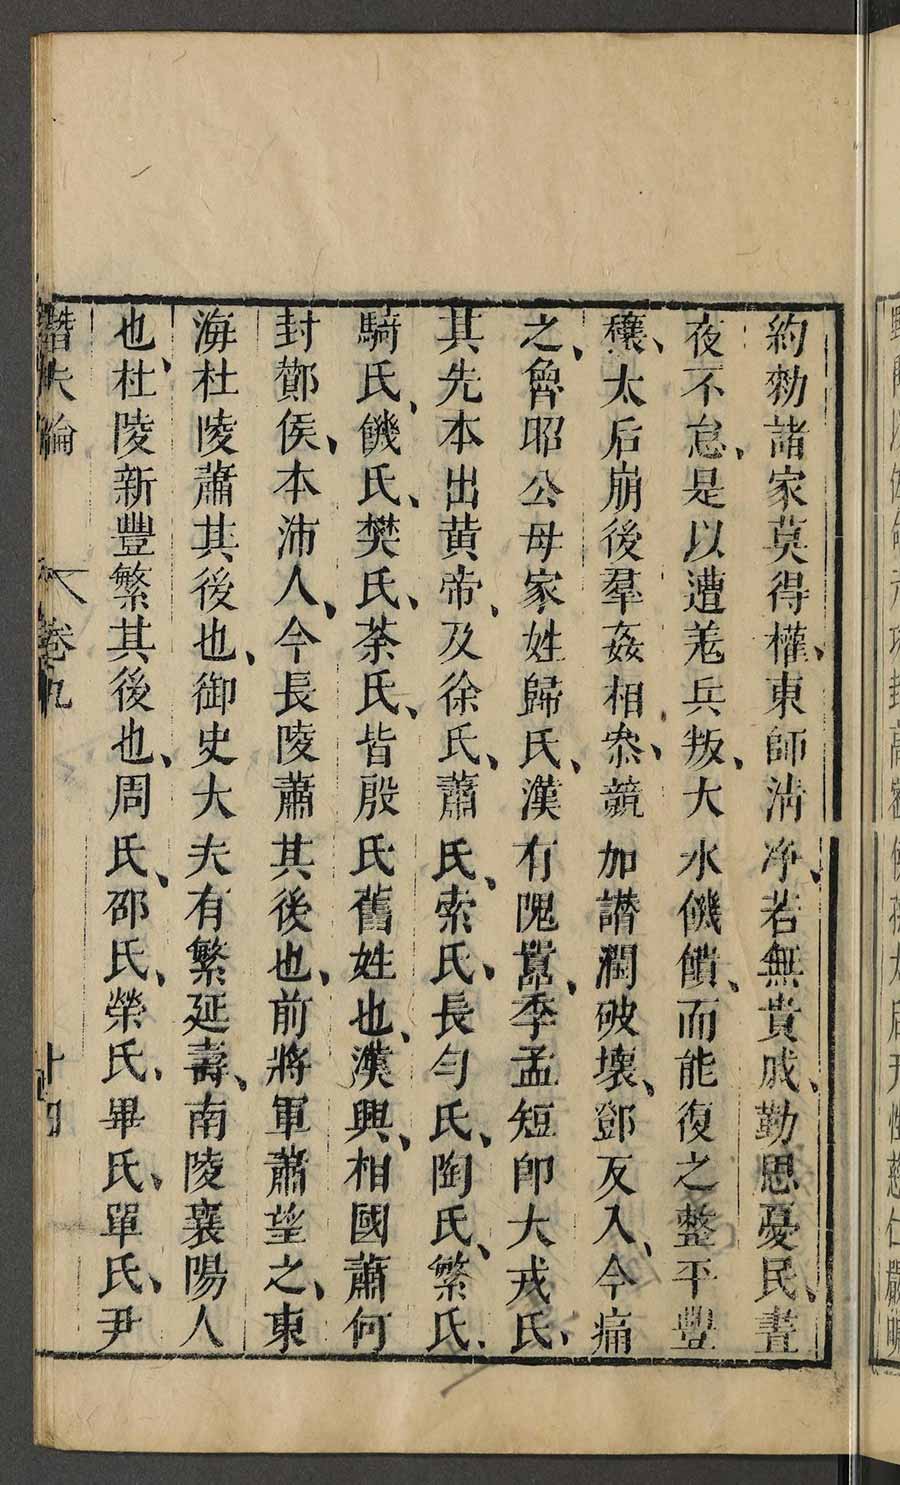 約勑諸家莫得權、東師淸净、若無貴戚、勤思憂民、晝
夜不怠、是以遭羗兵叛、大水饑饋、而能復之整平豐
穰、太后崩後羣姦相叅、競加譛潤破壞、鄧氏入、今痛
之、魯昭公母家姓歸氏、漢有隗囂、季孟短卽犬戎氏、
其先本出黄帝、及徐氏、蕭氏、索氏、長勺氏、陶氏、繁氏、
騎氏、饑氏、樊氏、荼氏、皆殷氏舊姓也、漢興、相國蕭何
封酇侯、本沛人、今長陵蕭其後也、前將軍蕭望之、東
海杜陵蕭其後也、御史大夫有繁延壽、南陵襄陽人
也、杜陵新豐繁其後也、周氏、邵氏、榮氏、畢氏、單氏、尹
潛夫論 卷九 十四